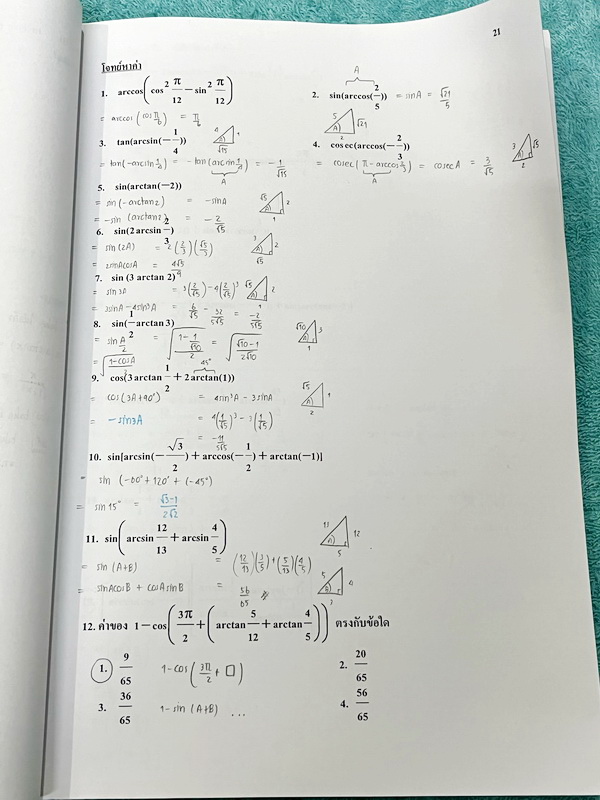 21
โจทย์หาค่า
1. arccos(cos² π/12 − sin² π/12)
= arccos (cos π/6) = π/6
2. sin(arccos(2/5)) = sinA = √21/5
A
5 √21 A 2
3. tan(arcsin(−1/4))
4 1 A √15
= tan(−arcsin 1/4) = −tan(arcsin 1/4) = −1/√15
A
4. cosec(arccos(−2/3))
3 √5 A 2
= cosec(π − arccos 2/3) = cosecA = 3/√5
A
5. sin(arctan(−2))
= sin(−arctan2) = −sinA
√5 2 A 1
= −sin (arctan2) = −2/√5
6. sin(2 arcsin 2/3)
= sin (2A) = 2(2/3)(√5/3)
3 2 A √5
= 2sinAcosA = 4√5/9
7. sin (3 arctan 2)
= sin3A = 3(2/√5) − 4(2/√5)³
√5 2 A 1
= 3sinA − 4sin³A = 6/√5 − 32/5√5 = −2/5√5
8. sin(1/2 arctan 3)
= sin A/2 = √((1 − 1/√10)/2) = √((√10 − 1)/2√10)
√10 3 A 1
= √((1−cosA)/2)
45°
9. cos(3 arctan 1/2 + 2 arctan(1))
= cos (3A+90°) = 4sin³A − 3sinA
√5 1 A 2
= −sin3A = 4(1/√5)³ − 3(1/√5)
= −11/5√5
10. sin[arcsin(−√3/2) + arccos(−1/2) + arctan(−1)]
= sin (−60° + 120° + (−45°)
= sin 15° = √3−1/2√2
11. sin(arcsin 12/13 + arcsin 4/5)
13 12 A 5
= sin (A+B) = (12/13)(3/5) + (5/13)(4/5)
= sinAcosB + cosAsinB = 56/65
5 4 3
12. ค่าของ 1 − cos(3π/2 + (arctan 5/12 + arctan 4/5)) ตรงกับข้อใด
1. 9/65 1−cos(3π/2 + □) 2. 20/65
3. 36/65 1−sin (A+B) ... 4. 56/65